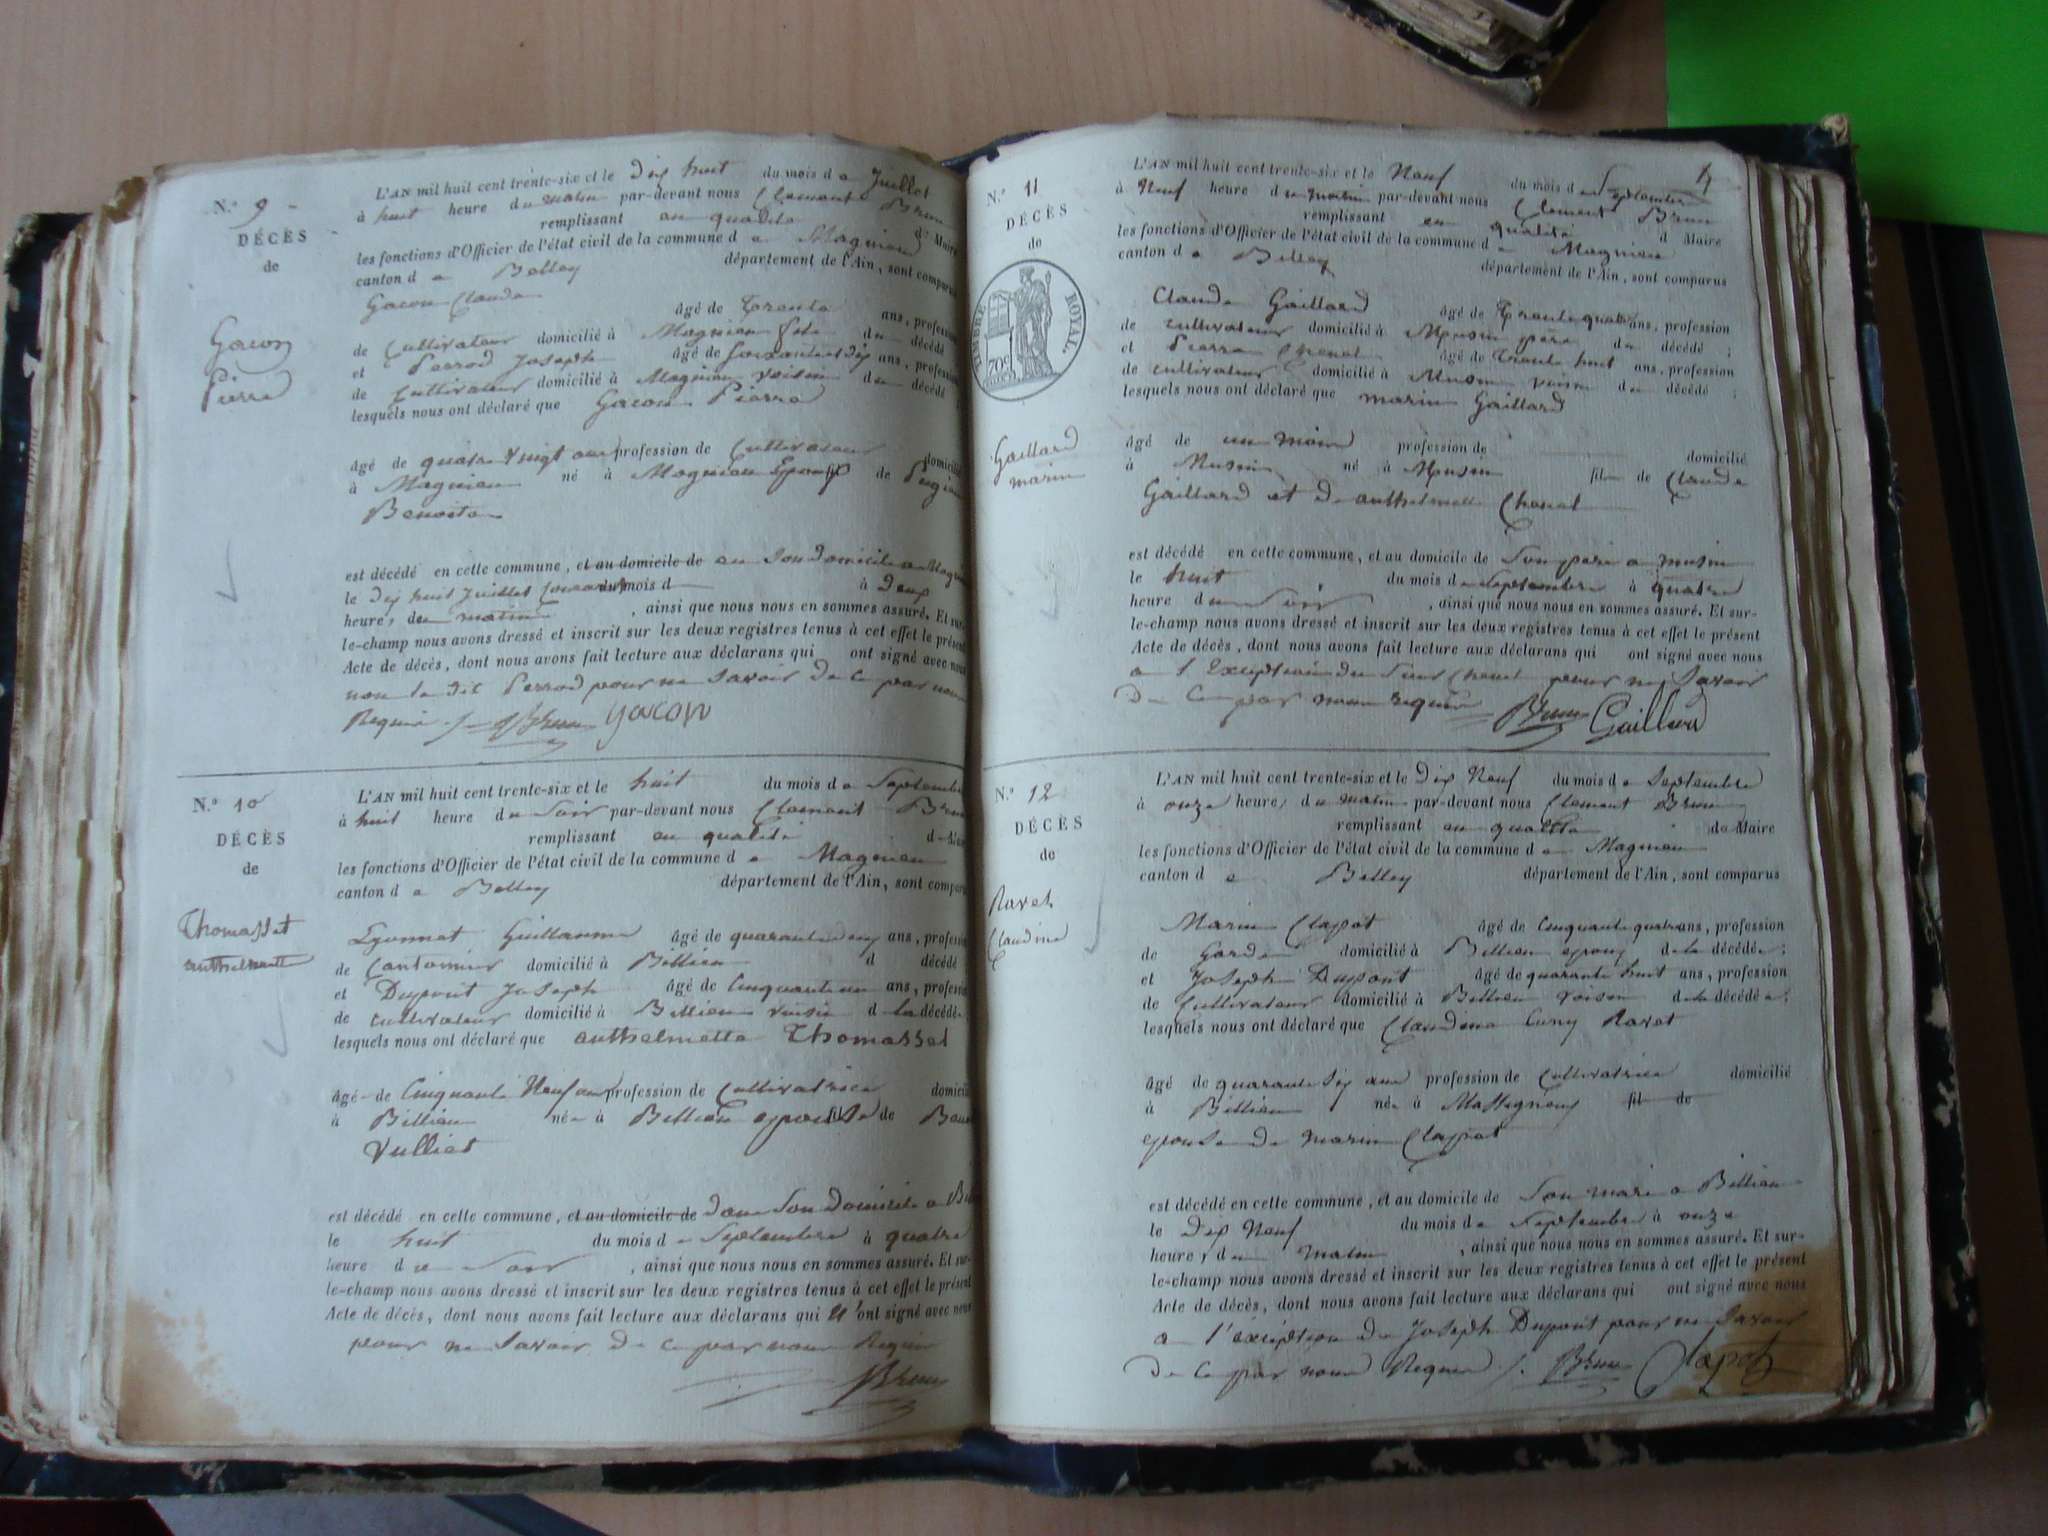 N.º 9
DÉCÈS
de
Gacon
Pierre
L'AN mil huit cent trente-six et le dix huit du mois de Juillet
à huit heure du matin par-devant nous Clement Brun
remplissant en qualité de Maire
les fonctions d'Officier de l'état civil de la commune de Magnieu
canton de Belley département de l'Ain, sont comparus
Gacon Claude âgé de Trente ans, profession
de Cultivateur domicilié à Magnieu fils du décédé
et Perrod Joseph âgé de soixante et dix ans, profession
de Cultivateur domicilié à Magnieu voisin du décédé
lesquels nous ont déclaré que Gacon Pierre
âgé de quatre vingt ans profession de Cultivateur domicilié
à Magnieu né à Magnieu Epoux de
Benoite
est décédé en cette commune, et au domicile de en son domicile a
le dix huit Juillet courant du mois d à deux
heure, du matin, ainsi que nous nous en sommes assuré. Et sur-
le-champ nous avons dressé et inscrit sur les deux registres tenus à cet effet le présent
Acte de décès, dont nous avons fait lecture aux déclarans qui ont signé avec nous
non le dit Perrod pour ne savoir de ce par nous
Requis Brun Gacon
N.º 10
DÉCÈS
de
Thomasset
anthelmette
L'AN mil huit cent trente-six et le huit du mois de Septembre
à huit heure du soir par-devant nous Clement Brun
remplissant en qualité
les fonctions d'Officier de l'état civil de la commune de Magnieu
canton de Belley département de l'Ain, sont comparu
Guillaume âgé de quarante deux ans, profession
de Cantonnier domicilié à Billieu d décédé
et Dupont Joseph âgé de Cinquante un ans, profession
de cultivateur domicilié à Billieu voisin d la décédée
lesquels nous ont déclaré que anthelmette Thomasset
âgée de Cinquante Neuf ans profession de Cultivatrice
à Billieu née à Billieu epouse de
Vulliet
est décédé en cette commune, et au domicile de dans son domicile a
le huit du mois de Septembre à quatre
heure du soir, ainsi que nous nous en sommes assuré. Et sur-
le-champ nous avons dressé et inscrit sur les deux registres tenus à cet effet le présent
Acte de décès, dont nous avons fait lecture aux déclarans qui n'ont signé avec nous
pour ne savoir de ce par nous Requis
Brun
4
N.º 11
DÉCÈS
de
TIMBRE ROYAL.
70c
Gaillard
marin
L'AN mil huit cent trente-six et le Neuf du mois de Septembre
à Neuf heure du matin par-devant nous Clement Brun
remplissant en qualité d Maire
les fonctions d'Officier de l'état civil de la commune de Magnieu
canton de Belley département de l'Ain, sont comparus
Claude Gaillard âgé de Trente quatre ans, profession
de cultivateur domicilié à Musin père du décédé;
et Pierre Chenet âgé de trente huit ans, profession
de cultivateur domicilié à Musin voisin du décédé;
lesquels nous ont déclaré que marin Gaillard
âgé de un mois profession de domicilié
à Musin né à Musin fils de Claude
Gaillard et de anthelmette
est décédé en cette commune, et au domicile de son père a musin
le huit du mois de Septembre à quatre
heure du soir, ainsi que nous nous en sommes assuré. Et sur-
le-champ nous avons dressé et inscrit sur les deux registres tenus à cet effet le présent
Acte de décès, dont nous avons fait lecture aux déclarans qui ont signé avec nous
a l'Exception du sieur Chenet pour ne savoir
de ce par nous requis Brun Gaillard
N.º 12
DÉCÈS
de
Ravet
Claudine
L'AN mil huit cent trente-six et le dix Neuf du mois de Septembre
à onze heure, du matin par-devant nous Clement Brun
remplissant en qualité de Maire
les fonctions d'Officier de l'état civil de la commune de Magnieu
canton de Belley département de l'Ain, sont comparus
Marin Clapot âgé de Cinquante quatre ans, profession
de Garde domicilié à Billieu epoux de la décédée;
et Joseph Dupont âgé de quarante huit ans, profession
de Cultivateur domicilié à Billieu voisin de la décédée;
lesquels nous ont déclaré que Claudine Cuny Ravet
âgé de quarante six ans profession de Cultivatrice domicilié
à Billieu née à Massigneux fil de
epouse de marin Clapot
est décédé en cette commune, et au domicile de son mari a Billieu
le dix Neuf du mois de Septembre à onze
heure, du matin, ainsi que nous nous en sommes assuré. Et sur-
le-champ nous avons dressé et inscrit sur les deux registres tenus à cet effet le présent
Acte de décès, dont nous avons fait lecture aux déclarans qui ont signé avec nous
a l'éxception de Joseph Dupont pour ne savoir
de ce par nous Requis Brun Clapot